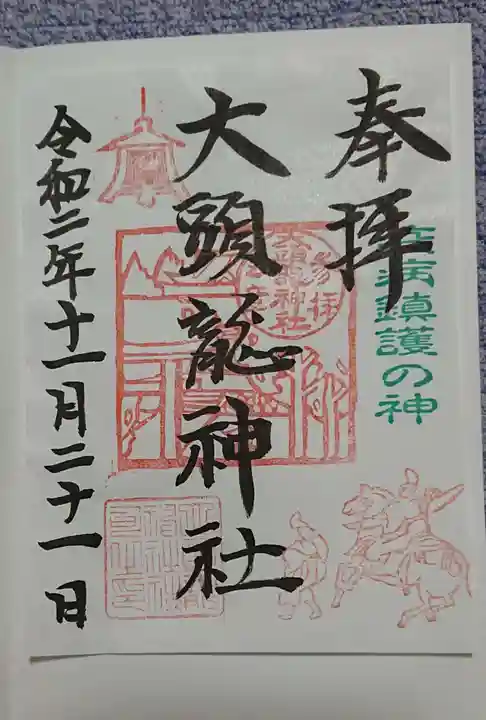 奉拝
病鎮護の神
大頭龍神社
参拝
大頭龍神社
令和二年十一月二十一日